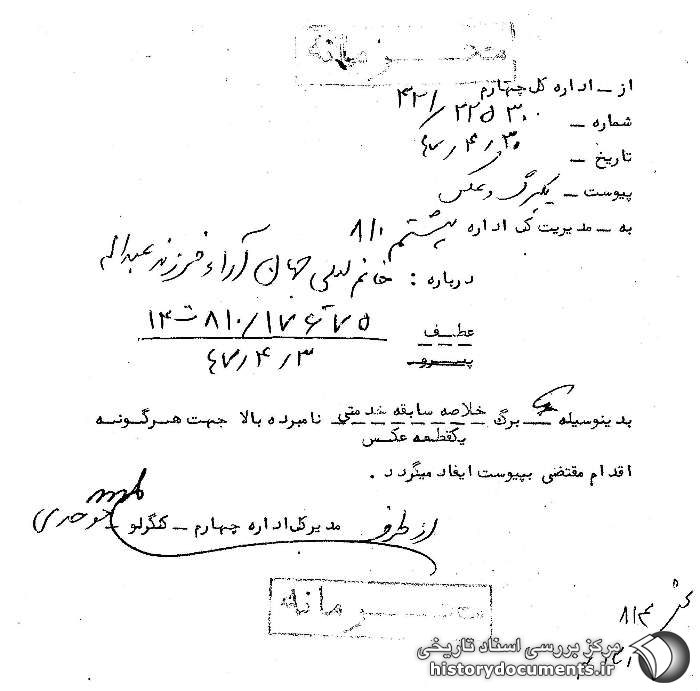 محرمانه
از - اداره کل چهارم
شماره - ۳۲۱/۲۲۵۳۰۰
تاریخ - ۴۷/۴/۳۰
پیوست - یکبرگ و عکس
به - مدیریت کل اداره هشتم ۸۱۰
درباره : خانم لیلی جهان آراء فرزند عبداله
عطف
پیرو
۴۷/۴/۳
بدینوسیله یک برگ خلاصه سابقه خدمتی نامبرده بالا جهت هرگونه
یکقطعه عکس
اقدام مقتضی بپیوست ایفاد میگردد .
مدیرکل اداره چهارم - کنگرلو
از طرف موحدی
محرمانه
۸۱۴
مرکز بررسی اسناد تاریخی
historydocuments.ir